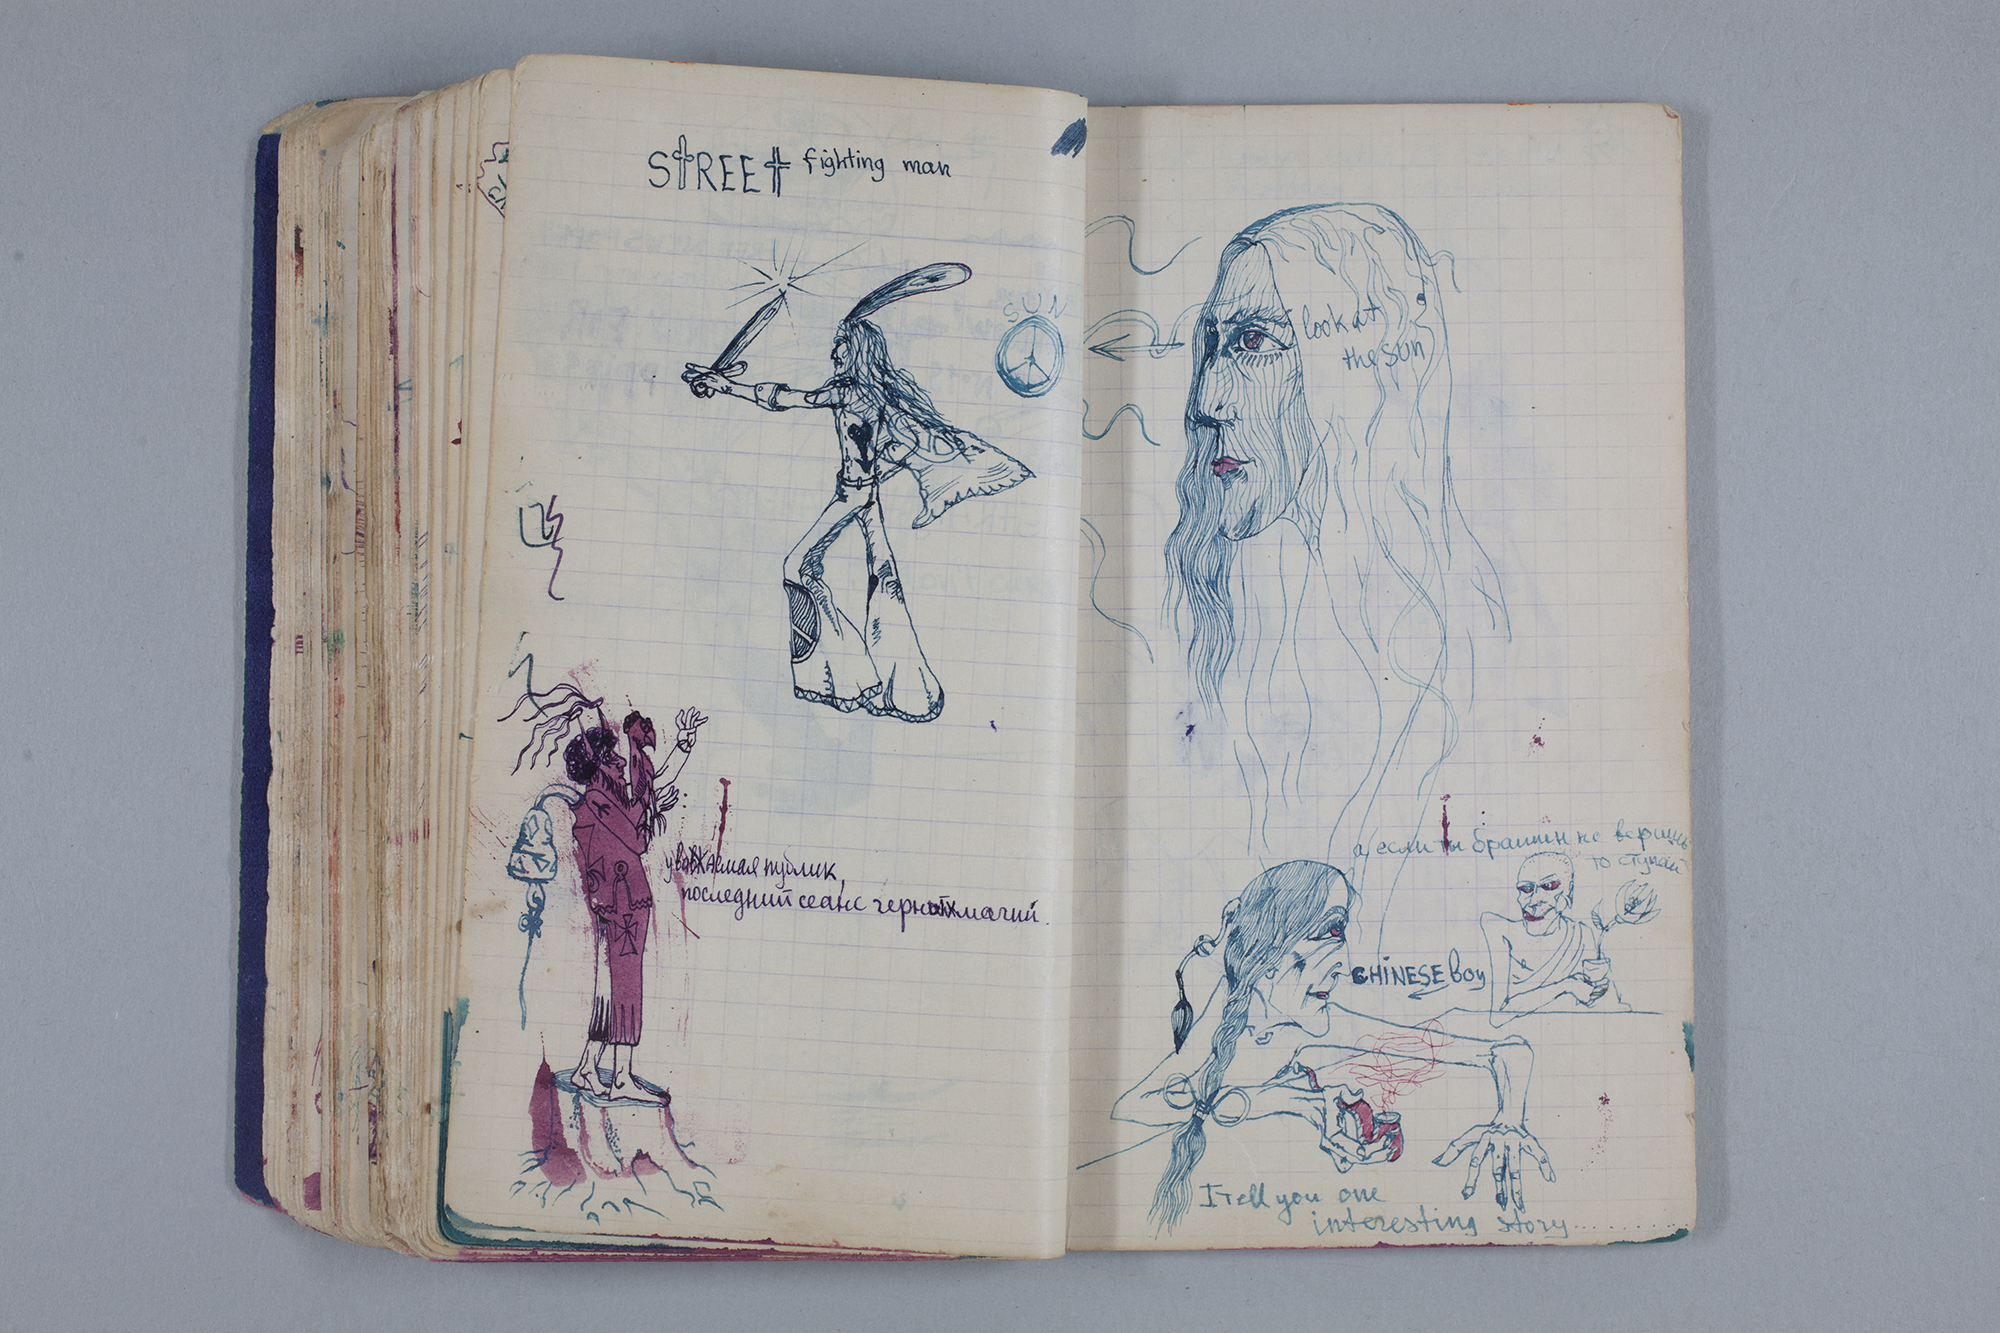 STREET fighting man
SUN
уважаемая публик
последний сеанс черной магии.
look at
the SUN
а если ты брамин не веришь
то ступай
CHINESE boy
I tell you one
interesting story.....